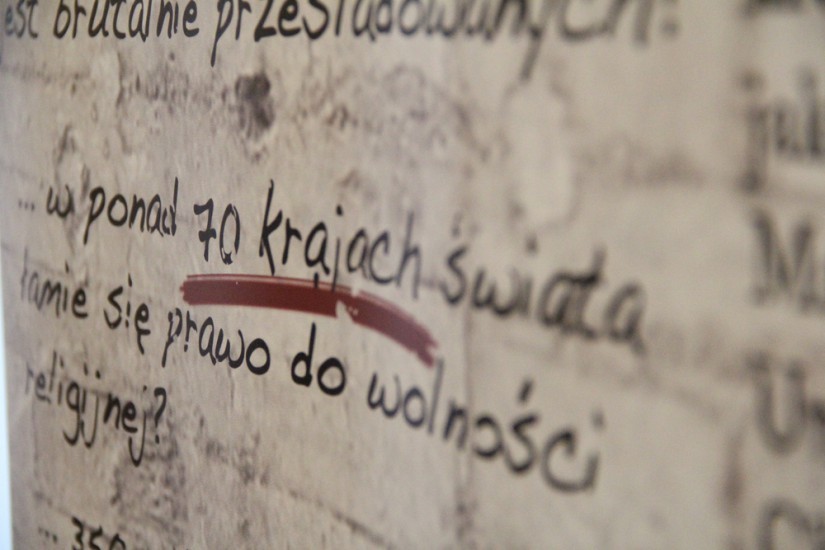 jest brutalnie prześladowanych:
... w ponad 70 krajach świata
łamie się prawo do wolności
religijnej?
... 350